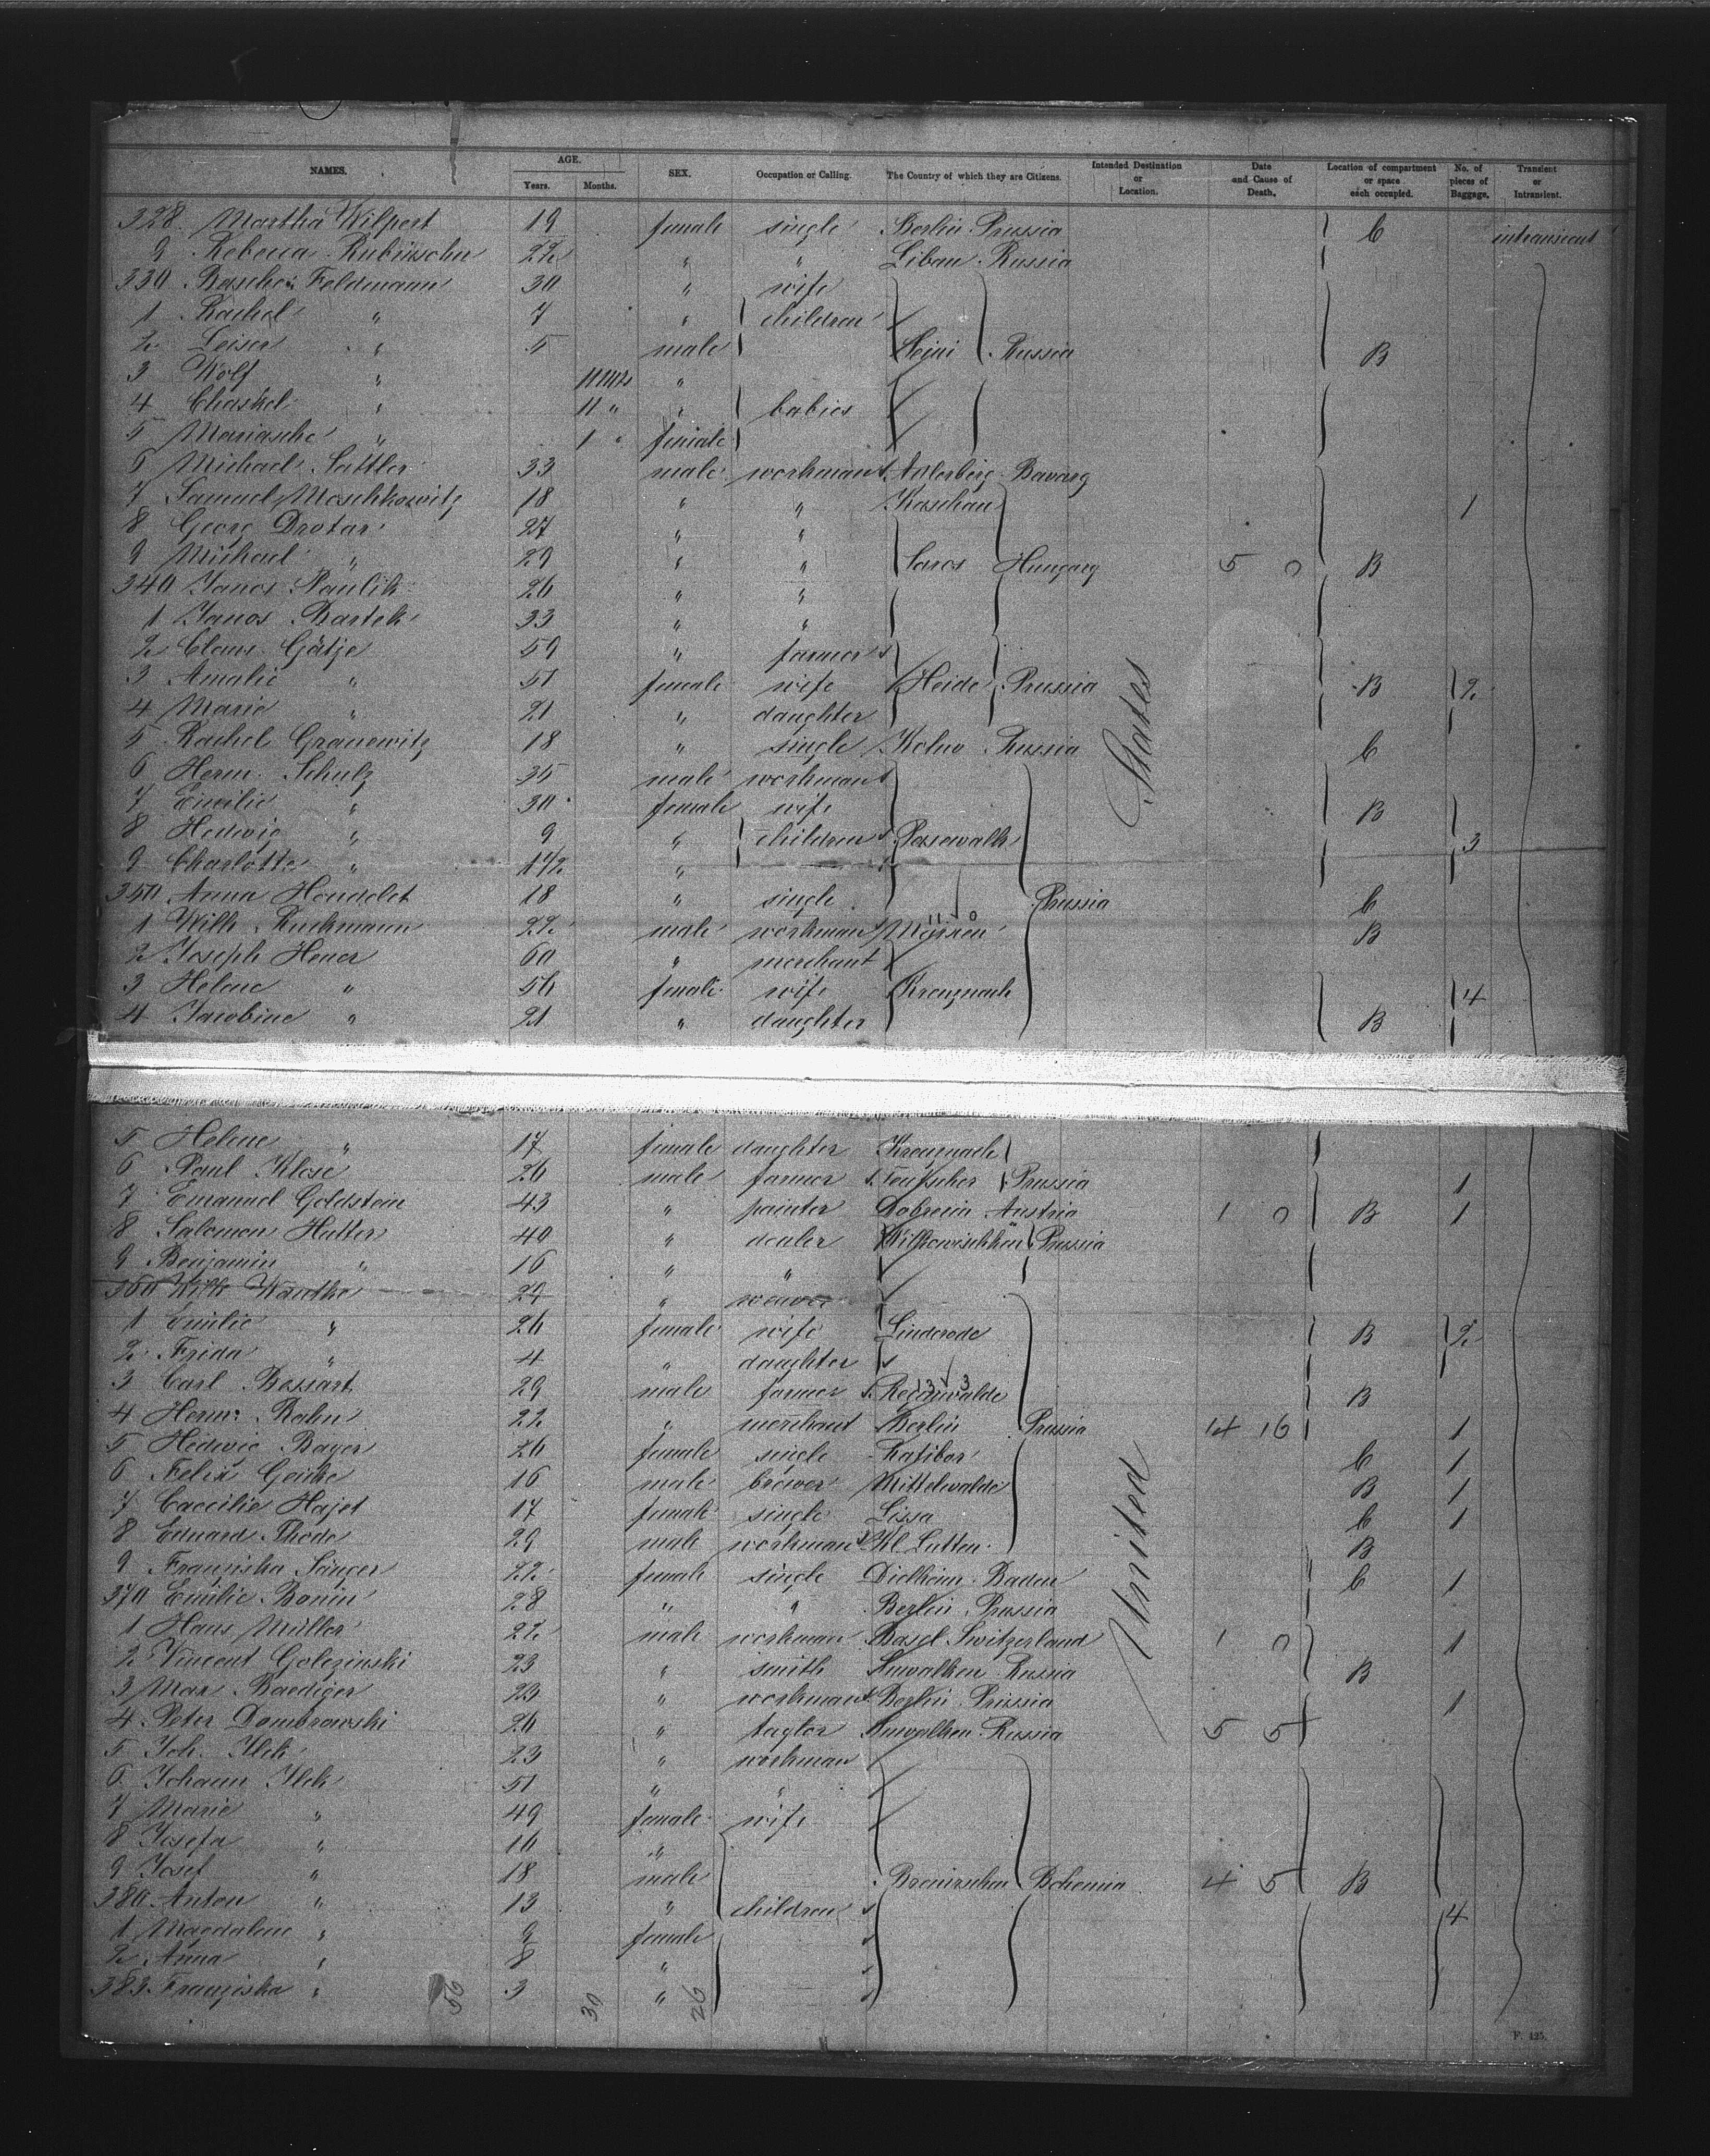 NAMES. AGE. Years. Months. SEX. Occupation or Calling. The Country of which they are Citizens. Intended Destination or Location. Date and Cause of Death. Location of compartment or space each occupied. No. of pieces of Baggage. Transient or Intransient.
328. Martha Wilpert 19 female single Berlin Prussia C intransient
9 Rebecca Rubinsohn 22 " " Libau Russia
330 Feldmann 30 " wife
1 Rachel " 7 " children
2 Leiser " 5 male Russia B
3 Wolf " 11 "
4 Chaskel " 11 " " babies
5 Mariasche " 1 " female
6 Michael Sattler 33 male workman
7 Samuel Moschkowitz 18 " " Kaschau 1
8 Georg Drotar 27 " "
9 Michael " 29 " " Saros Hungary 5 0 B
340 Janos Paulik 26 " "
1 Janos Bartek 33 " "
2 Claus Gätje 59 " farmer
3 Amalie " 51 female wife Heide Prussia B 2
4 Marie " 21 " daughter
5 Rachel Granewitz 18 " single Kolno Russia C
6 Herm. Schulz 35 male workman
7 Emilie " 30 female wife B
8 Hedwig " 9 " children Pasewalk 3
9 Charlotte " 1 1/2 "
350 Anna 18 " single Prussia C
1 Wilh. 22 male workman B
2 Joseph Heuer 60 " merchant
3 Helene " 56 female wife Kreuznach 4
4 Jacobine " 21 " daughter B
States
5 Helene " 17 female daughter Kreuznach
6 Paul Klose 26 male farmer Prussia 1
7 Emanuel Goldstein 43 " painter Austria 1 0 B 1
8 Salomon Hutter 40 " dealer
9 Benjamin " 16 " "
360 29 " weaver
1 Emilie " 26 female wife Linderode B 2
2 Frida " 4 " daughter
3 Carl Bossart 29 male farmer Regenwalde B
4 Herm. Rahn 22 " merchant Berlin Prussia 14 16 1
5 Hedwig Bayer 26 female single Ratibor C 1
6 Felix 16 male brewer Mittelwalde B 1
7 Caecilie Hajet 17 female single Lissa C 1
8 Eduard Thode 29 male workman Kl. B
9 Franziska Sänger 22 female single Dielheim Baden C 1
370 Emilie Bonin 28 " " Berlin Prussia
1 Hans Müller 22 male workman Basel Switzerland 1 0 1
2 Vincent Golezinski 23 " smith Suwalken Russia B
3 Max Baediger " workman Berlin Prussia 1
4 Peter Dombrowski 26 " taylor Suwalken Russia 5 5
United
5 Joh. Ilek 23 " workman
6 Johann Ilek 51 " "
7 Marie " 49 female wife
8 Josefa " 16 "
9 Josef " 18 male Bohemia 4 5 B
380 Anton " 13 " children 4
1 Magdalene " 9 female
2 Anna " 8 "
383 Franziska " 3 "
56 30 26
F. 425.